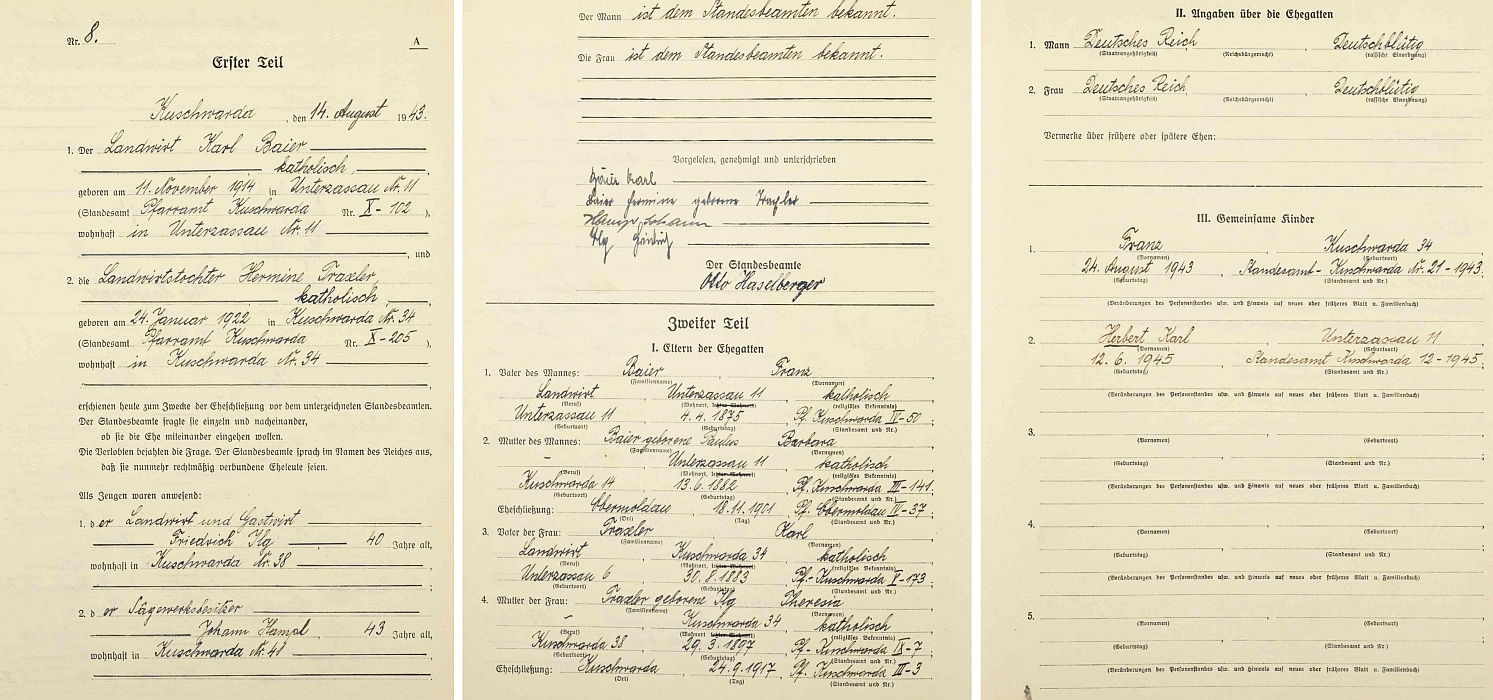 Nr. 8.
A
Erster Teil
Kuschwarda , den 14. August 1943.
1. Der Landwirt Karl Baier
katholisch ,
geboren am 11. November 1914 in Unterzassau Nr. 11
(Standesamt Pfarramt Kuschwarda Nr. X - 102 ),
wohnhaft in Unterzassau Nr. 11
, und
2. die Landwirtstochter Hermine Traxler,
katholisch ,
geboren am 24. Januar 1922 in Kuschwarda Nr. 34
(Standesamt Pfarramt Kuschwarda Nr. X - 205 ),
wohnhaft in Kuschwarda Nr. 34
erschienen heute zum Zwecke der Eheschließung vor dem unterzeichneten Standesbeamten.
Der Standesbeamte fragte sie einzeln und nacheinander,
ob sie die Ehe miteinander eingehen wollen.
Die Verlobten bejahten die Frage. Der Standesbeamte sprach im Namen des Reiches aus,
daß sie nunmehr rechtmäßig verbundene Eheleute seien.
Als Zeugen waren anwesend:
1. d er Landwirt und Gastwirt
Friedrich Ilg , 40 Jahre alt,
wohnhaft in Kuschwarda Nr. 38
;
2. d er Sägewerksbesitzer
Johann Hampl , 43 Jahre alt,
wohnhaft in Kuschwarda Nr. 41
Der Mann ist dem Standesbeamten bekannt.
Die Frau ist dem Standesbeamten bekannt.
Vorgelesen, genehmigt und unterschrieben
Baier Karl
Baier Hermine geborene Traxler
Hampl Johann
Ilg Friedrich
Der Standesbeamte
Otto Haselberger
Zweiter Teil
I. Eltern der Ehegatten
1. Vater des Mannes: Baier , Franz ,
(Familienname) (Vornamen)
Landwirt , Unterzassau 11 , katholisch ,
(Beruf) (Wohnort, letzter Wohnort) (religiöses Bekenntnis)
Unterzassau 11 , 4. 4. 1875 , Pf. Kuschwarda IV-50 ;
(Geburtsort) (Geburtstag) (Standesamt und Nr.)
2. Mutter des Mannes: Baier geborene Paulus , Barbara ,
(Familienname) (Vornamen)
- , Unterzassau 11 , katholisch ,
(Beruf) (Wohnort, letzter Wohnort) (religiöses Bekenntnis)
Kuschwarda 14 , 13. 6. 1882 , Pf. Kuschwarda III-141 ;
(Geburtsort) (Geburtstag) (Standesamt und Nr.)
Eheschließung: Obermoldau , 18. 11. 1901 , Pf. Obermoldau IV-37 ;
(Ort) (Tag) (Standesamt und Nr.)
3. Vater der Frau: Traxler , Karl ,
(Familienname) (Vornamen)
Landwirt , Kuschwarda 34 , katholisch ,
(Beruf) (Wohnort, letzter Wohnort) (religiöses Bekenntnis)
Unterzassau 6 , 30. 8. 1883 , Pf. Kuschwarda V-173 ;
(Geburtsort) (Geburtstag) (Standesamt und Nr.)
4. Mutter der Frau: Traxler geborene Ilg , Theresia ,
(Familienname) (Vornamen)
- , Kuschwarda 34 , katholisch ,
(Beruf) (Wohnort, letzter Wohnort) (religiöses Bekenntnis)
Kuschwarda 38 , 29. 3. 1897 , Pf. Kuschwarda IX-7 ;
(Geburtsort) (Geburtstag) (Standesamt und Nr.)
Eheschließung: Kuschwarda , 24. 9. 1917 , Pf. Kuschwarda III-3
(Ort) (Tag) (Standesamt und Nr.)
II. Angaben über die Ehegatten
1. Mann Deutsches Reich , , Deutschblütig
(Staatsangehörigkeit) (Reichsbürgerrecht) (rassische Einordnung)
2. Frau Deutsches Reich , , Deutschblütig
(Staatsangehörigkeit) (Reichsbürgerrecht) (rassische Einordnung)
Vermerke über frühere oder spätere Ehen:
III. Gemeinsame Kinder
1. Franz , Kuschwarda 34 ,
(Vornamen) (Geburtsort)
24. August 1943 , Standesamt - Kuschwarda Nr. 21 - 1943 ;
(Geburtstag) (Standesamt und Nr.)
(Veränderungen des Personenstandes usw. und Hinweis auf neues oder früheres Blatt u. Familienbuch)
2. Herbert Karl , Unterzassau 11 ,
(Vornamen) (Geburtsort)
12. 6. 1945 , Standesamt Kuschwarda 12 - 1945 ;
(Geburtstag) (Standesamt und Nr.)
(Veränderungen des Personenstandes usw. und Hinweis auf neues oder früheres Blatt u. Familienbuch)
3.
(Vornamen) (Geburtsort)
(Geburtstag) (Standesamt und Nr.)
(Veränderungen des Personenstandes usw. und Hinweis auf neues oder früheres Blatt u. Familienbuch)
4.
(Vornamen) (Geburtsort)
(Geburtstag) (Standesamt und Nr.)
(Veränderungen des Personenstandes usw. und Hinweis auf neues oder früheres Blatt u. Familienbuch)
5.
(Vornamen) (Geburtsort)
(Geburtstag) (Standesamt und Nr.)
(Veränderungen des Personenstandes usw. und Hinweis auf neues oder früheres Blatt u. Familienbuch)